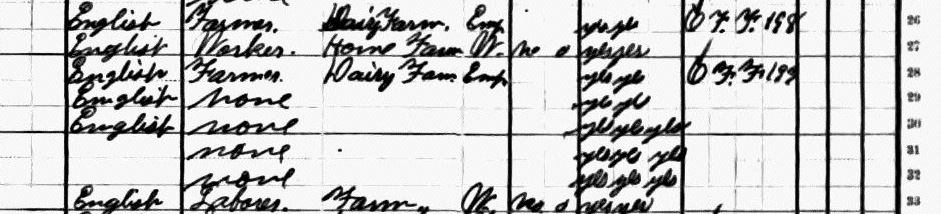 English Farmer. Dairy Farm. Emp yes yes O F. F. 198 26
English Worker. Home Farm W. no 0 yes yes 27
English Farmer. Dairy Farm Emp yes yes O F. F. 199 28
English none yes yes 29
English none yes yes yes 30
none yes yes yes 31
none yes yes yes 32
English Laborer. Farm W. no 0 yes yes 33